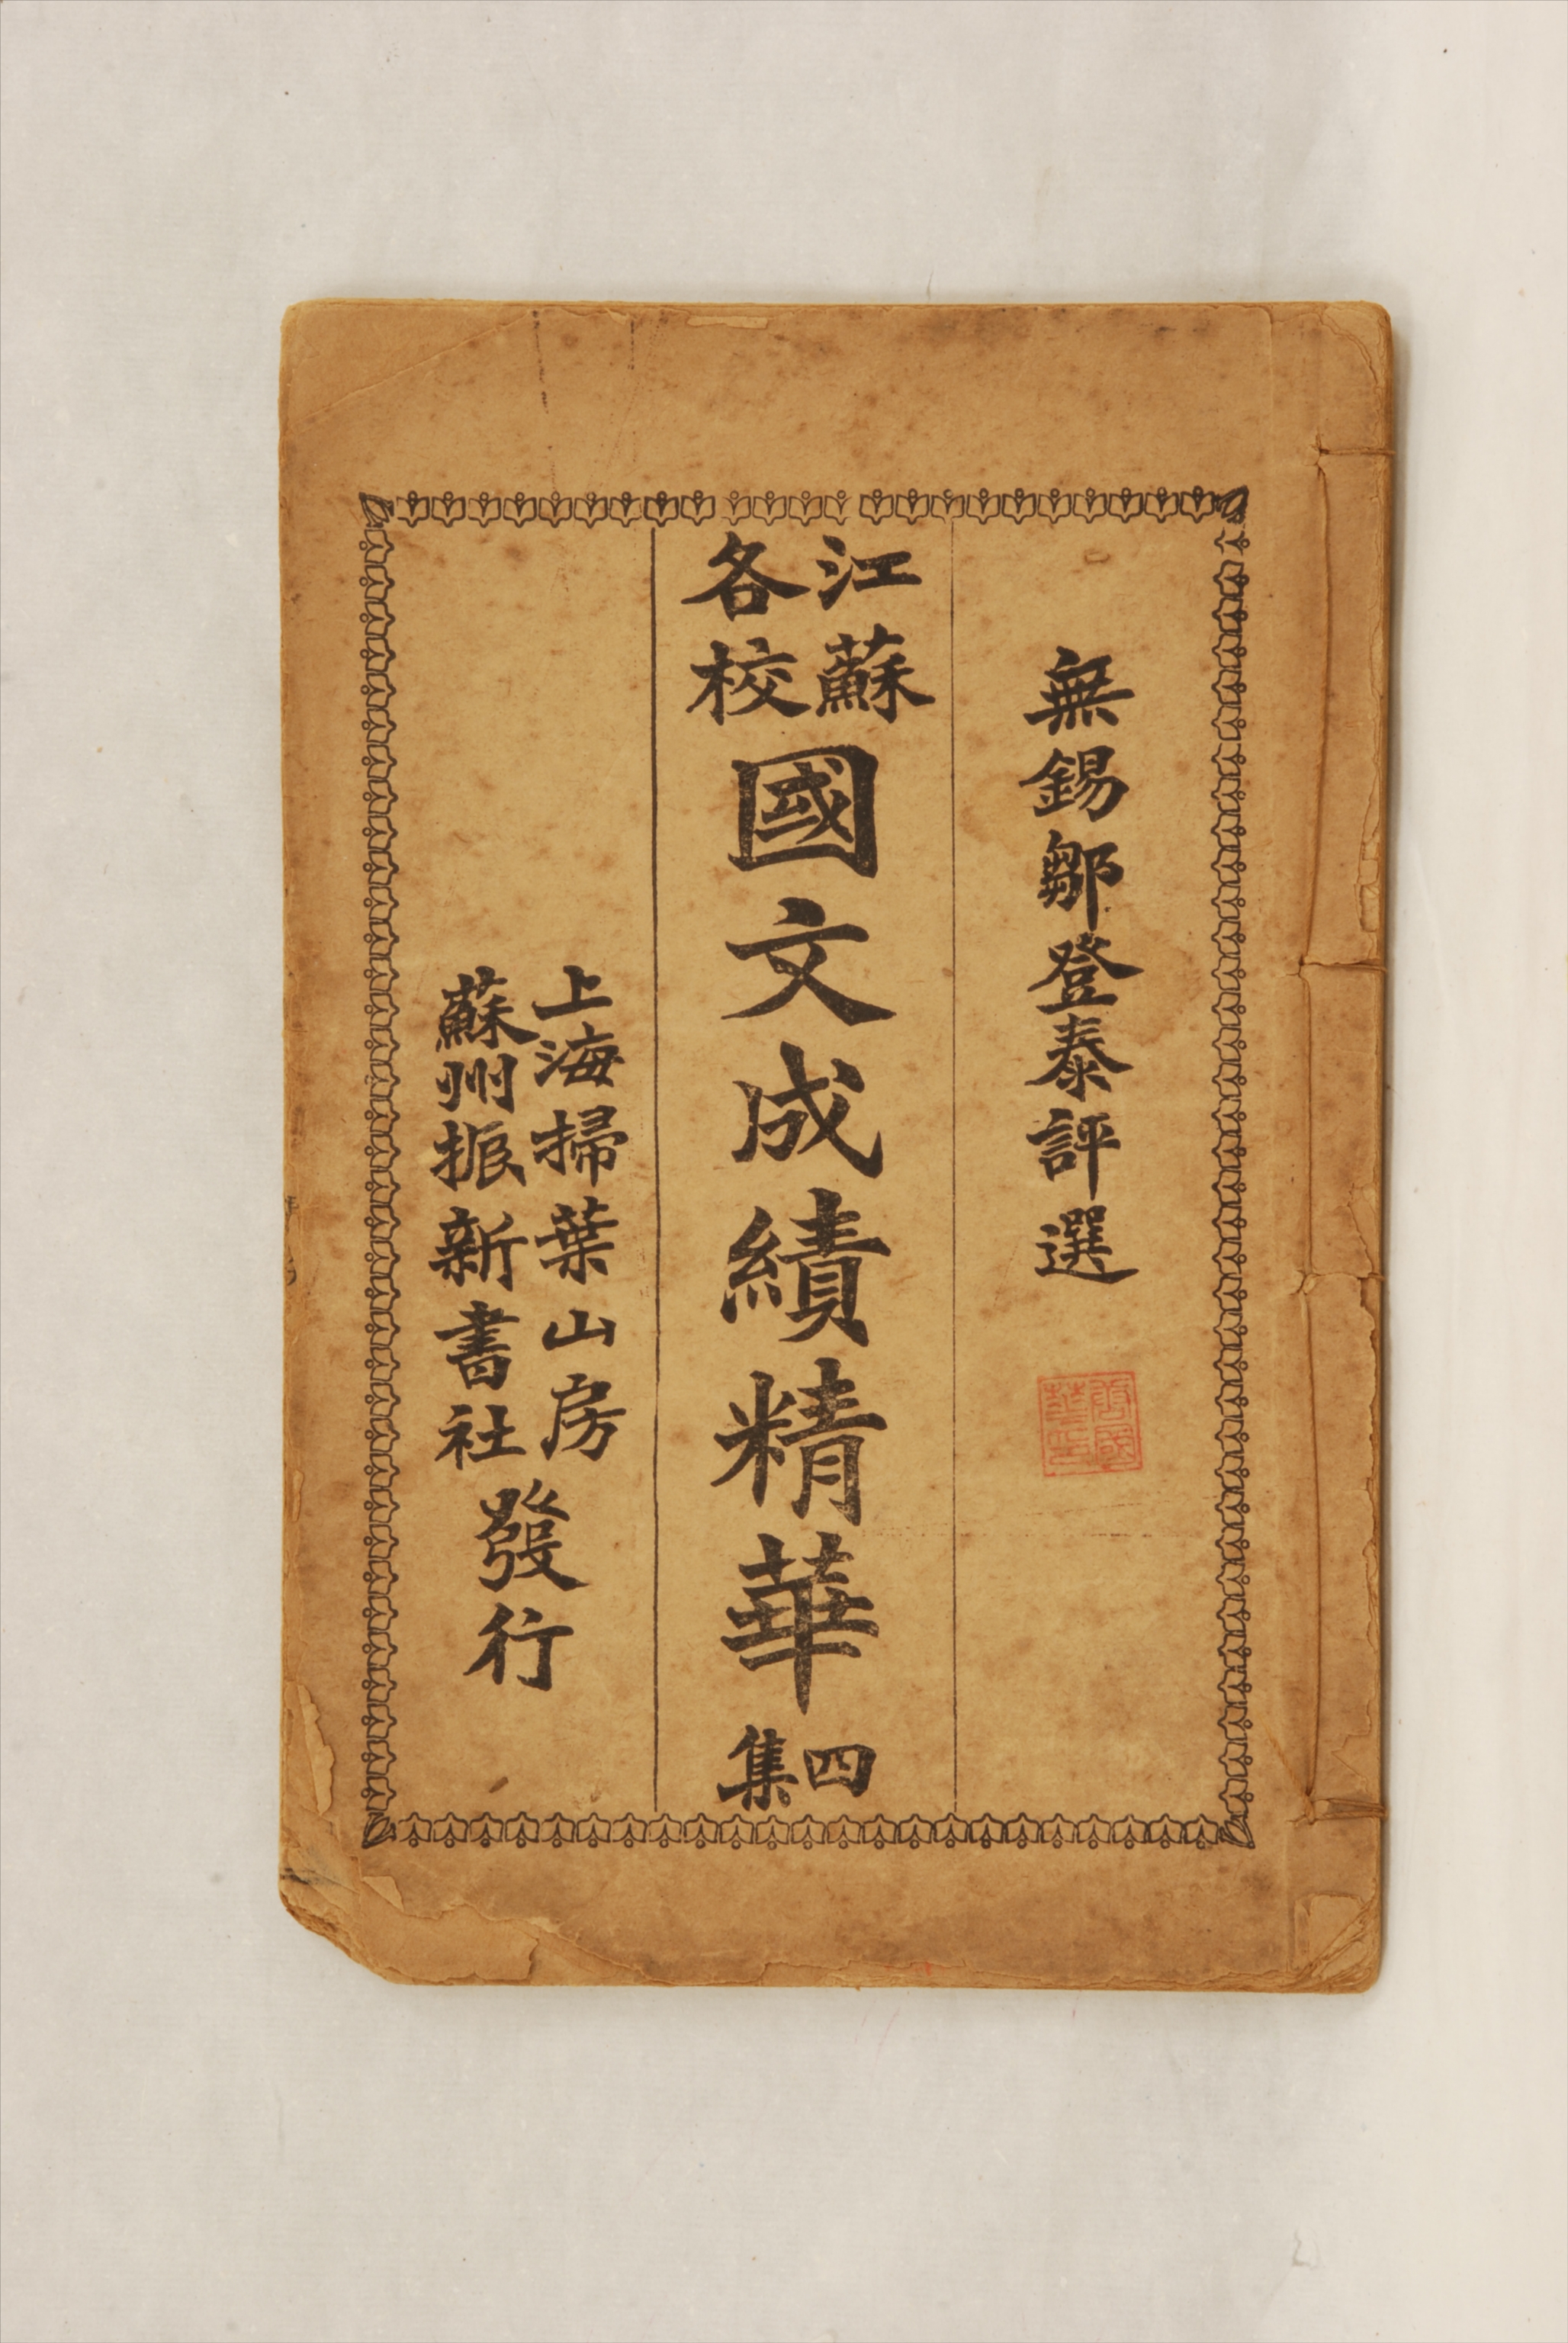 無錫鄒登泰評選
江蘇
各校
國文成績精華
四
集
上海掃葉山房
蘇州振新書社
發行